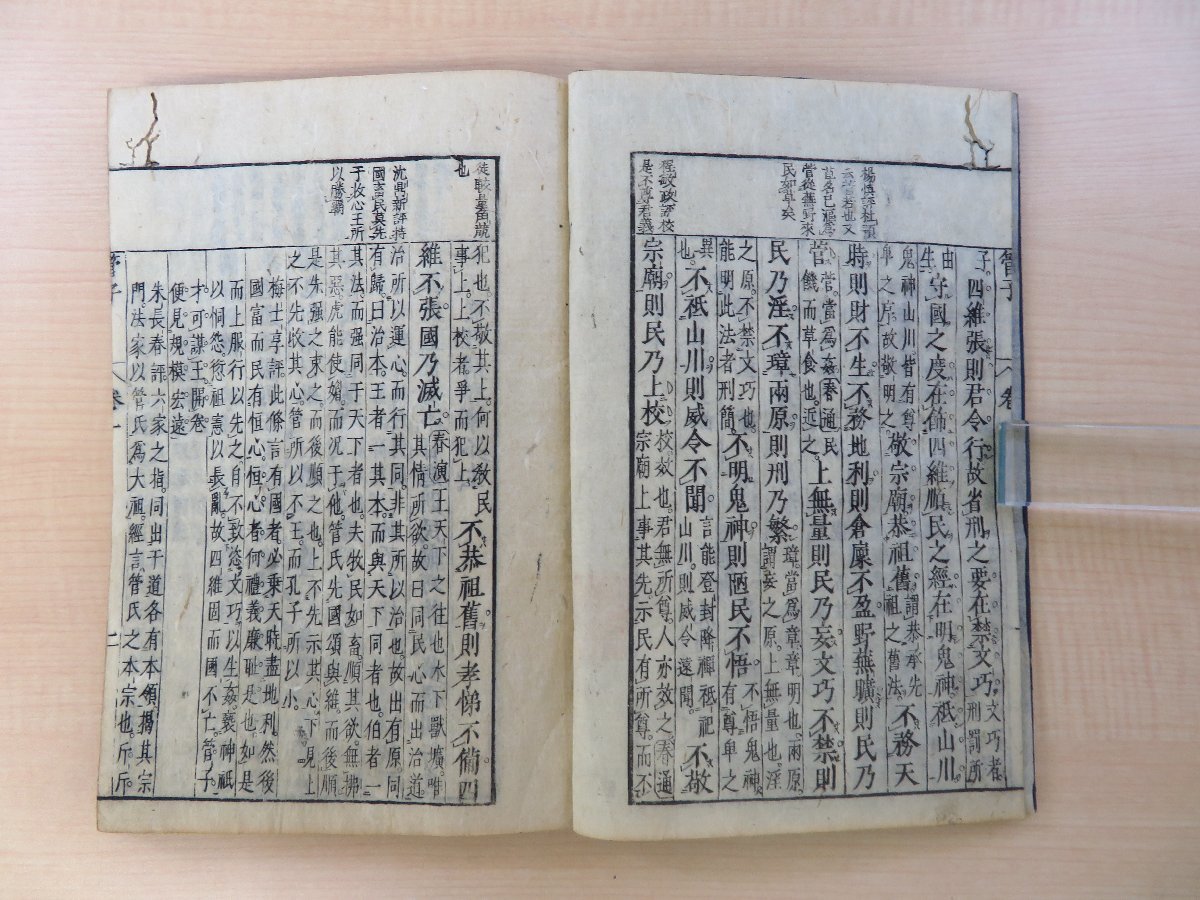 楊慎評杜預
管從無野來
民卸草矣
程敏政評校
是不尊君義
子四維張則君令行故省刑之要在禁文巧文巧者刑罰所
由生守國之度在飾四維順民之經在明鬼神祗山川
鬼神山川皆有尊卑之序故敬明之敬宗廟恭祖舊謂恭承先祖之舊法不務天
時則財不生不務地利則倉廩不盈野蕪曠則民乃
菅菅當爲姦春通民餓而草食也近之上無量則民乃妄文巧不禁則
民乃淫不璋兩原則刑乃繁璋當爲章章明也兩原謂妄之原上無量也淫
之原不禁文巧也能明此法者刑簡不明鬼神則陋民不悟不悟鬼神有尊卑之
異也不祗山川則威令不聞言能登封降禪祗祀山川則威令遠聞不敬
宗廟則民乃上校校效也君無所尊人亦效之春通宗廟上事其先示民有所尊而不
徒較量競
也
沈鼎新評持
國畜民莫先
于收心王所
以勝霸
犯也不敬其上何以敎民事上上校者爭而犯上不恭祖舊則孝悌不備四
維不張國乃滅亡春演王天下之往也水下獸壙唯其情所欲故曰同民心而出治道
治所以運心而行其同非其所以治也故出有原同有歸曰治本王者一其本而與天下同者也伯者一
其法而强同于天下者也夫牧民如畜順其欲無拂其惡虎能使媚而況于他管氏先國頌與維而後順
是先强之束之而後順之也上不先示其心下見上之不先收其心管所以不王而孔子所以小
梅士享評此條言有國者必乘天時盡地利然後
國富而民有恒心恒心者何禮義廉耻是也如是
而上服行以先之自不致怠文巧以生姦䙝神祇
以恫怨愆祖憲以長亂故四維固而國不亡管子
才可謀王開卷
便見規模宏遠
朱長春評六家之指同出于道各有本領揭其宗
門法家以管氏爲大祖經言管氏之本宗也斤斤
管子
卷一
二